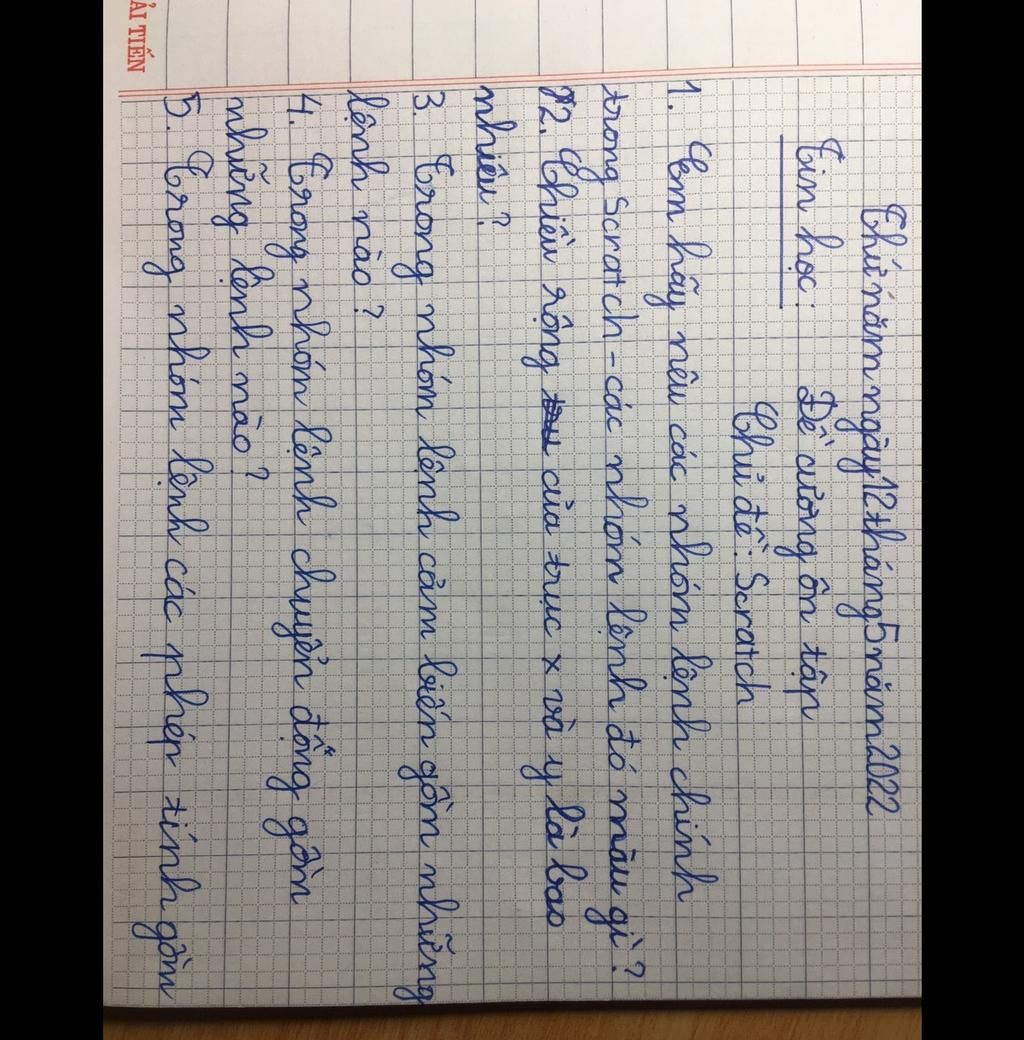 Thứ năm ngày 12 tháng 5 năm 2022
Tin học: Đề cương ôn tập
Chủ đề: Scratch
1. Em hãy nêu các nhóm lệnh chính
trong Scratch - các nhóm lệnh đó màu gì?
2. Chiều rộng của trục x và y là bao
nhiêu?
3. Trong nhóm lệnh cảm biến gồm những
lệnh nào?
4. Trong nhóm lệnh chuyển động gồm
những lệnh nào?
5. Trong nhóm lệnh các phép tính gồm
ẢI TIẾN